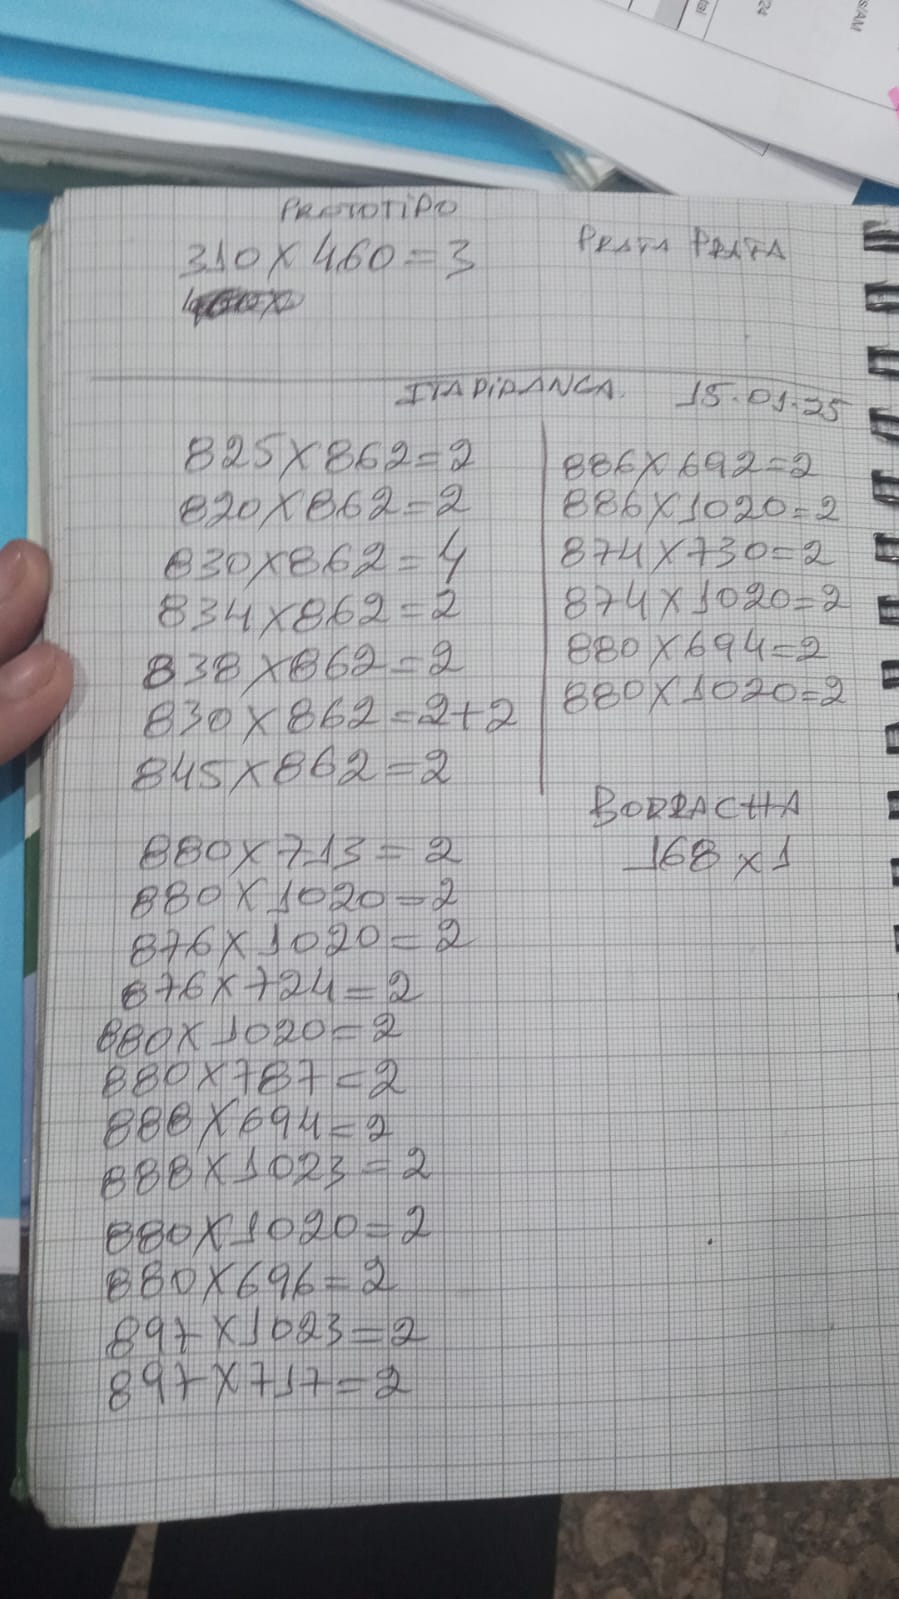 PROTOTIPO
310 X 460 = 3
PRATA PRATA
ITAPIRANGA. 15.01.25
825 X 862 = 2
820 X 862 = 2
830 X 862 = 4
834 X 862 = 2
838 X 862 = 2
830 X 862 = 2+2
845 X 862 = 2
886 X 692 = 2
886 X 1020 = 2
874 X 730 = 2
874 X 1020 = 2
880 X 694 = 2
880 X 1020 = 2
BORRACHA
168 x 1
880 X 713 = 2
880 X 1020 = 2
876 X 1020 = 2
876 X 724 = 2
880 X 1020 = 2
880 X 787 = 2
888 X 694 = 2
888 X 1023 = 2
880 X 1020 = 2
880 X 696 = 2
897 X 1023 = 2
897 X 717 = 2